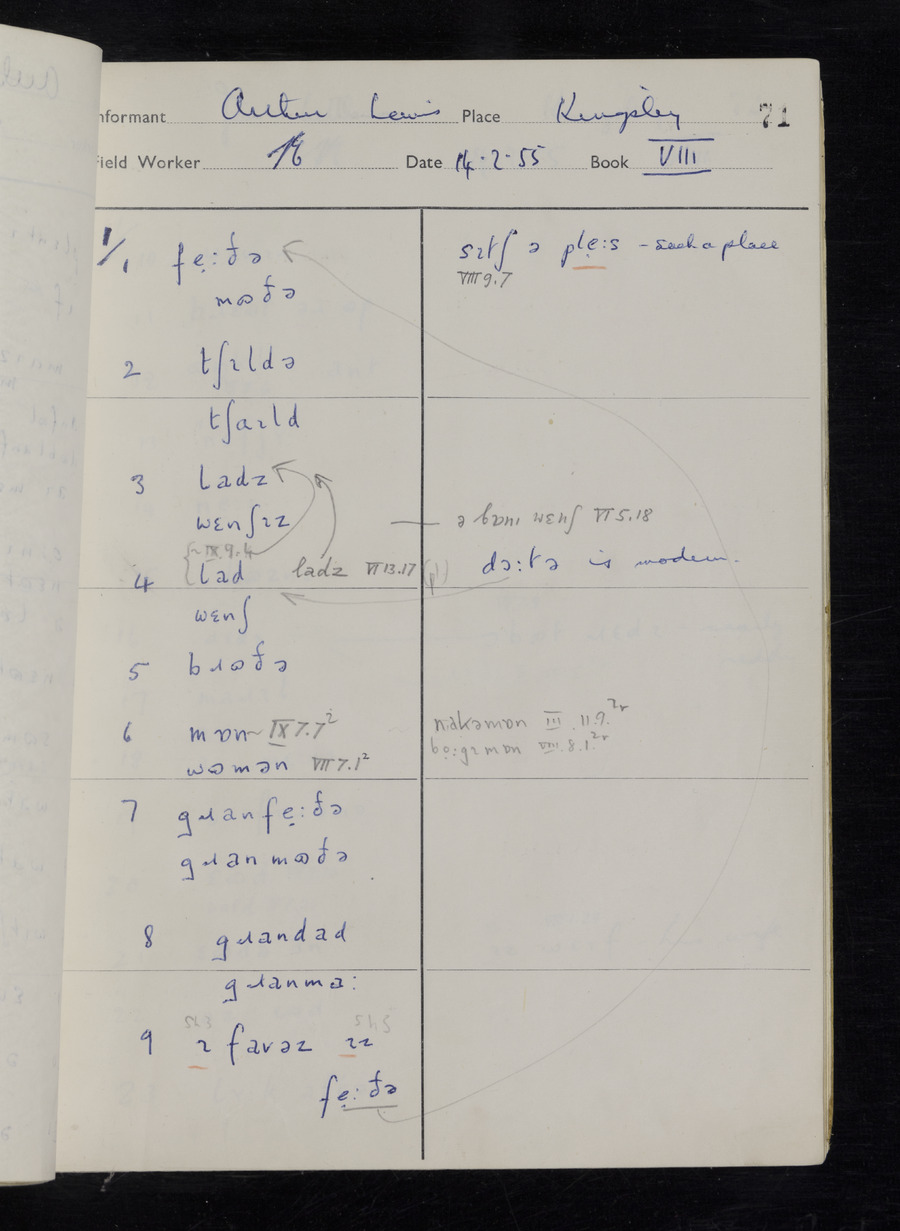 Informant Arthur Lewis Place Kingsley 71
Field Worker Date 14.2.55 Book VIII
1/1 fẹ:ðə
sɪtʃ ə plẹ:s - such a place
VIII 9.7
mɷðə
2 tʃɪldə
tʃaɪld
3 ladz
wɛnʃɪz
ə bɒnɪ wɛnʃ VI 5.18
~ IX 9.4
4 lad ladz VI 13.17 (pl)
dɔ:tə is modern.
wɛnʃ
5 bɹɷðə
6 mɒn ~ IX 7.7²
nakəmɒn III .11.9.²ʳ
wɷmən VII 7.1²
bọ:gɪmɒn VIII.8.1.²ʳ
7 gɹanfẹ:ðə
gɹanmɷðə
8 gɹandad
gɹanma:
9 ɪ favəz ɪz
fẹ:ðə